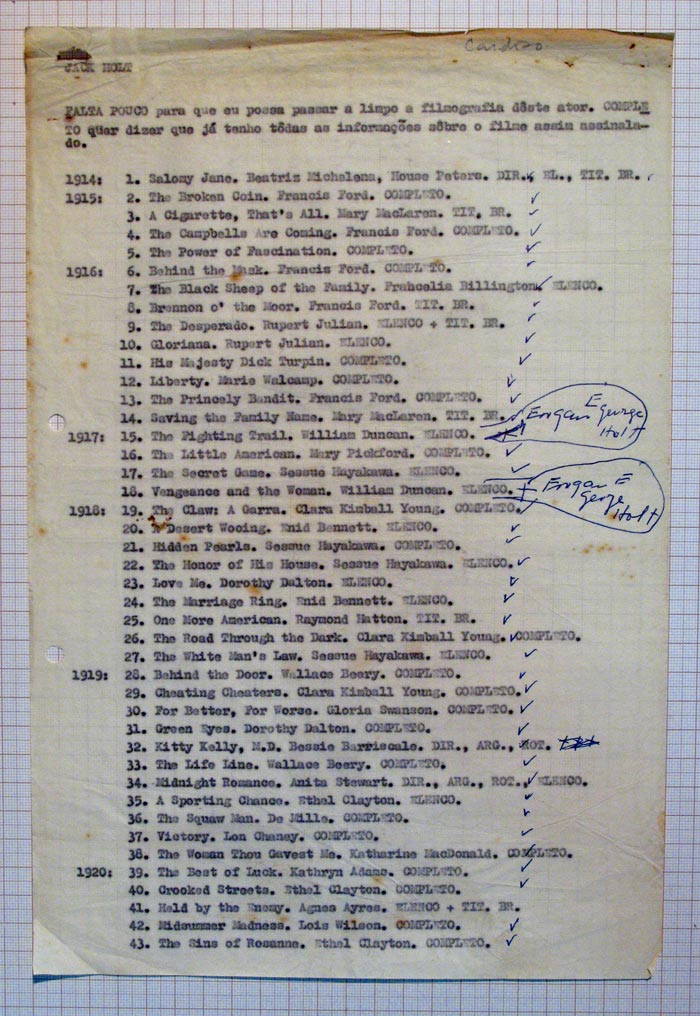 Cardoso
JACK HOLT
FALTA POUCO para que eu possa passar a limpo a filmografia dêste ator. COMPLE
TO quer dizer que já tenho tôdas as informações sôbre o filme assim assinala-
do.
1914: 1. Salomy Jane. Beatriz Michelena, House Peters. DIR., EL., TIT. BR.
1915: 2. The Broken Coin. Francis Ford. COMPLETO.
3. A Cigarette, That's All. Mary MacLaren. TIT. BR.
4. The Campbells Are Coming. Francis Ford. COMPLETO.
5. The Power of Fascination. COMPLETO.
1916: 6. Behind the Mask. Francis Ford. COMPLETO.
7. The Black Sheep of the Family. Francelia Billington. ELENCO.
8. Brennon o' the Moor. Francis Ford. TIT. BR.
9. The Desperado. Rupert Julian. ELENCO + TIT. BR.
10. Gloriana. Rupert Julian. ELENCO.
11. His Majesty Dick Turpin. COMPLETO.
12. Liberty. Marie Walcamp. COMPLETO.
13. The Princely Bandit. Francis Ford. COMPLETO.
14. Saving the Family Name. Mary MacLaren. TIT. BR.
1917: 15. The Fighting Trail. William Duncan. ELENCO.
E
George
Holt
16. The Little American. Mary Pickford. COMPLETO.
17. The Secret Game. Sessue Hayakawa. ELENCO.
18. Vengeance and the Woman. William Duncan. ELENCO.
E
George
Holt
1918: 19. The Claw: A Garra. Clara Kimball Young. COMPLETO.
20. A Desert Wooing. Enid Bennett. ELENCO.
21. Hidden Pearls. Sessue Hayakawa. COMPLETO.
22. The Honor of His House. Sessue Hayakawa. ELENCO.
23. Love Me. Dorothy Dalton. ELENCO.
24. The Marriage Ring. Enid Bennett. ELENCO.
25. One More American. Raymond Hatton. TIT. BR.
26. The Road Through the Dark. Clara Kimball Young. COMPLETO.
27. The White Man's Law. Sessue Hayakawa. ELENCO.
1919: 28. Behind the Door. Wallace Beery. COMPLETO.
29. Cheating Cheaters. Clara Kimball Young. COMPLETO.
30. For Better, For Worse. Gloria Swanson. COMPLETO.
31. Green Eyes. Dorothy Dalton. COMPLETO.
32. Kitty Kelly, M.D. Bessie Barriscale. DIR., ARG., ROT.
33. The Life Line. Wallace Beery. COMPLETO.
34. Midnight Romance. Anita Stewart. DIR., ARG., ROT., ELENCO.
35. A Sporting Chance. Ethel Clayton. ELENCO.
36. The Squaw Man. De Mille. COMPLETO.
37. Victory. Lon Chaney. COMPLETO.
38. The Woman Thou Gavest Me. Katharine MacDonald. COMPLETO.
1920: 39. The Best of Luck. Kathryn Adams. COMPLETO.
40. Crooked Streets. Ethel Clayton. COMPLETO.
41. Held by the Enemy. Agnes Ayres. ELENCO + TIT. BR.
42. Midsummer Madness. Lois Wilson. COMPLETO.
43. The Sins of Rosanne. Ethel Clayton. COMPLETO.